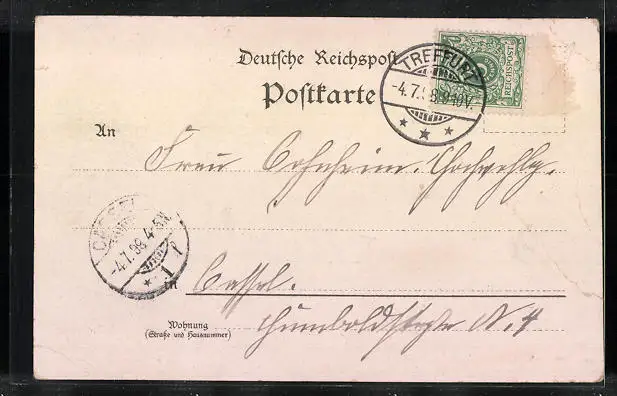 Deutsche Reichspost
Postkarte
REICHSPOST
TREFFURT
-4.7.98.9-10V.
An
Frau Bornheim. Hochwohlg.
CASSEL
-4.7.98 4-5N.
* 1 *
in Cassel.
Wohnung
(Straße und Hausnummer)
Humboldstraße N. 4